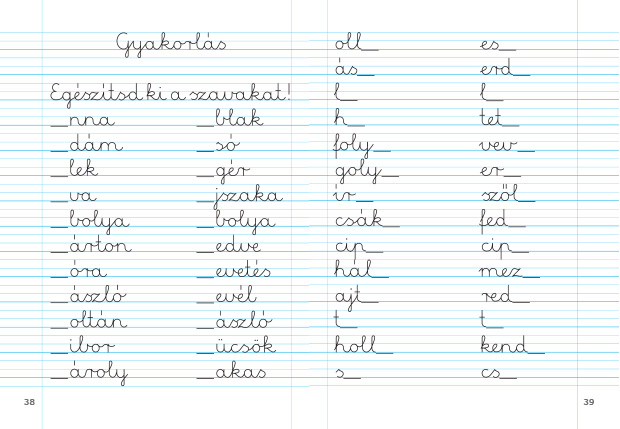 Gyakorlás
Egészítsd ki a szavakat!
__nna __blak
__dám __só
__lek __gér
__va __jszaka
__bolya __bolya
__árton __edve
__óra __evetés
__ászló __evél
__oltán __ászló
__ibor __ücsök
__ároly __akas
38
oll__ es__
ás__ erd__
l__ l__
h__ tet__
foly__ vev__
goly__ er__
ír__ szől__
csák__ fed__
cip__ cip__
hál__ mez__
ajt__ red__
t__ t__
holl__ kend__
s__ cs__
39